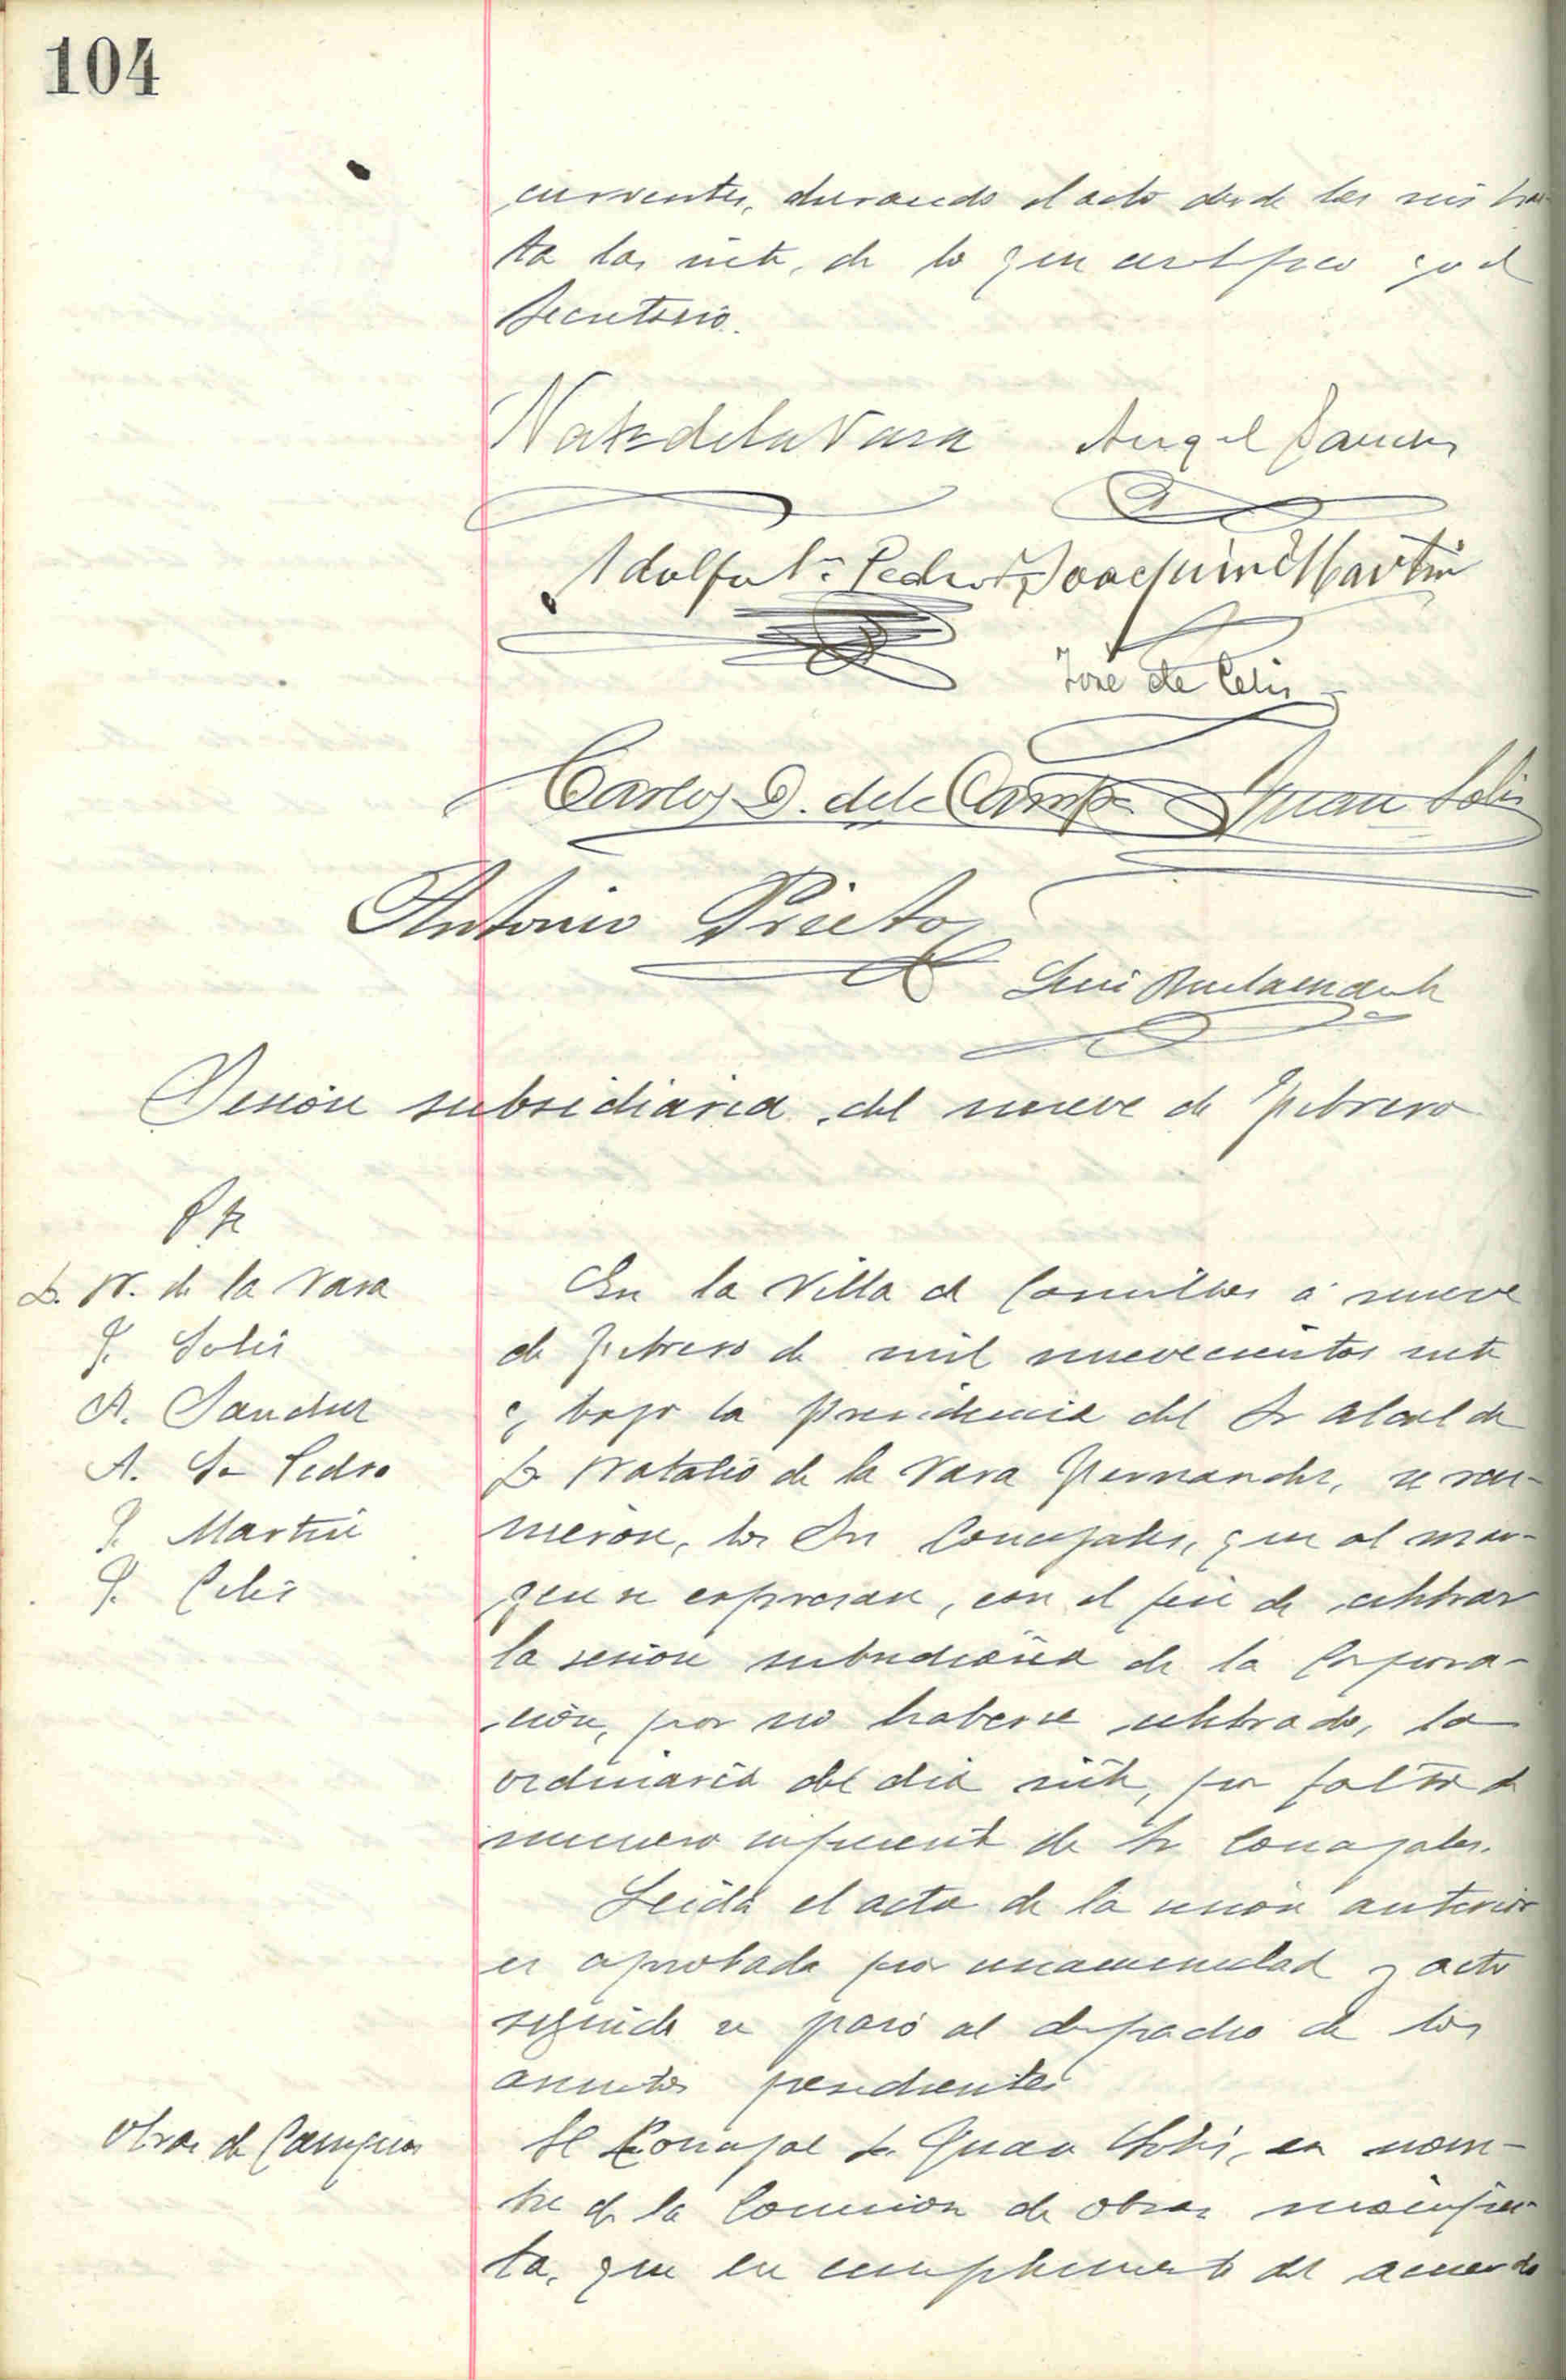 104
currentes, durando el acto desde las seis has
ta las siete, de lo que certifico yo el
Secretario.
Nat. de la Vara Angel Sanchez
Adolfo Sn Pedro Joaquin Martin
José de Celis
Carlos D. de la Campa Juan Solis
Antonio Prieto
Luis Bustamante
Sesión subsidiaria del nueve de Febrero
D. N. de la Vara
J. Solis
A. Sanchez
A. Sn Pedro
J. Martin
J. Celis
En la Villa de Comillas á nueve
de Febrero de mil novecientos siete
y bajo la presidencia del Sr Alcalde
Dn Natalio de la Vara Fernandez, se reu-
nieron, los Srs Concejales, que al mar-
gen se expresan, con el fin de celebrar
la sesión subsidiaria de la Corpora-
ción, por no haberse celebrado, la
ordinaria del dia siete, por falta de
numero suficiente de Srs Concejales.
Leida el acta de la sesión anterior
es aprobada por unanimidad y acto
seguido se pasó al despacho de los
asuntos pendientes
Obras de Campios
El Concejal Dn Juan Solis, en nom-
bre de la Comision de obras manifies-
ta, que en cumplimiento del acuerdo